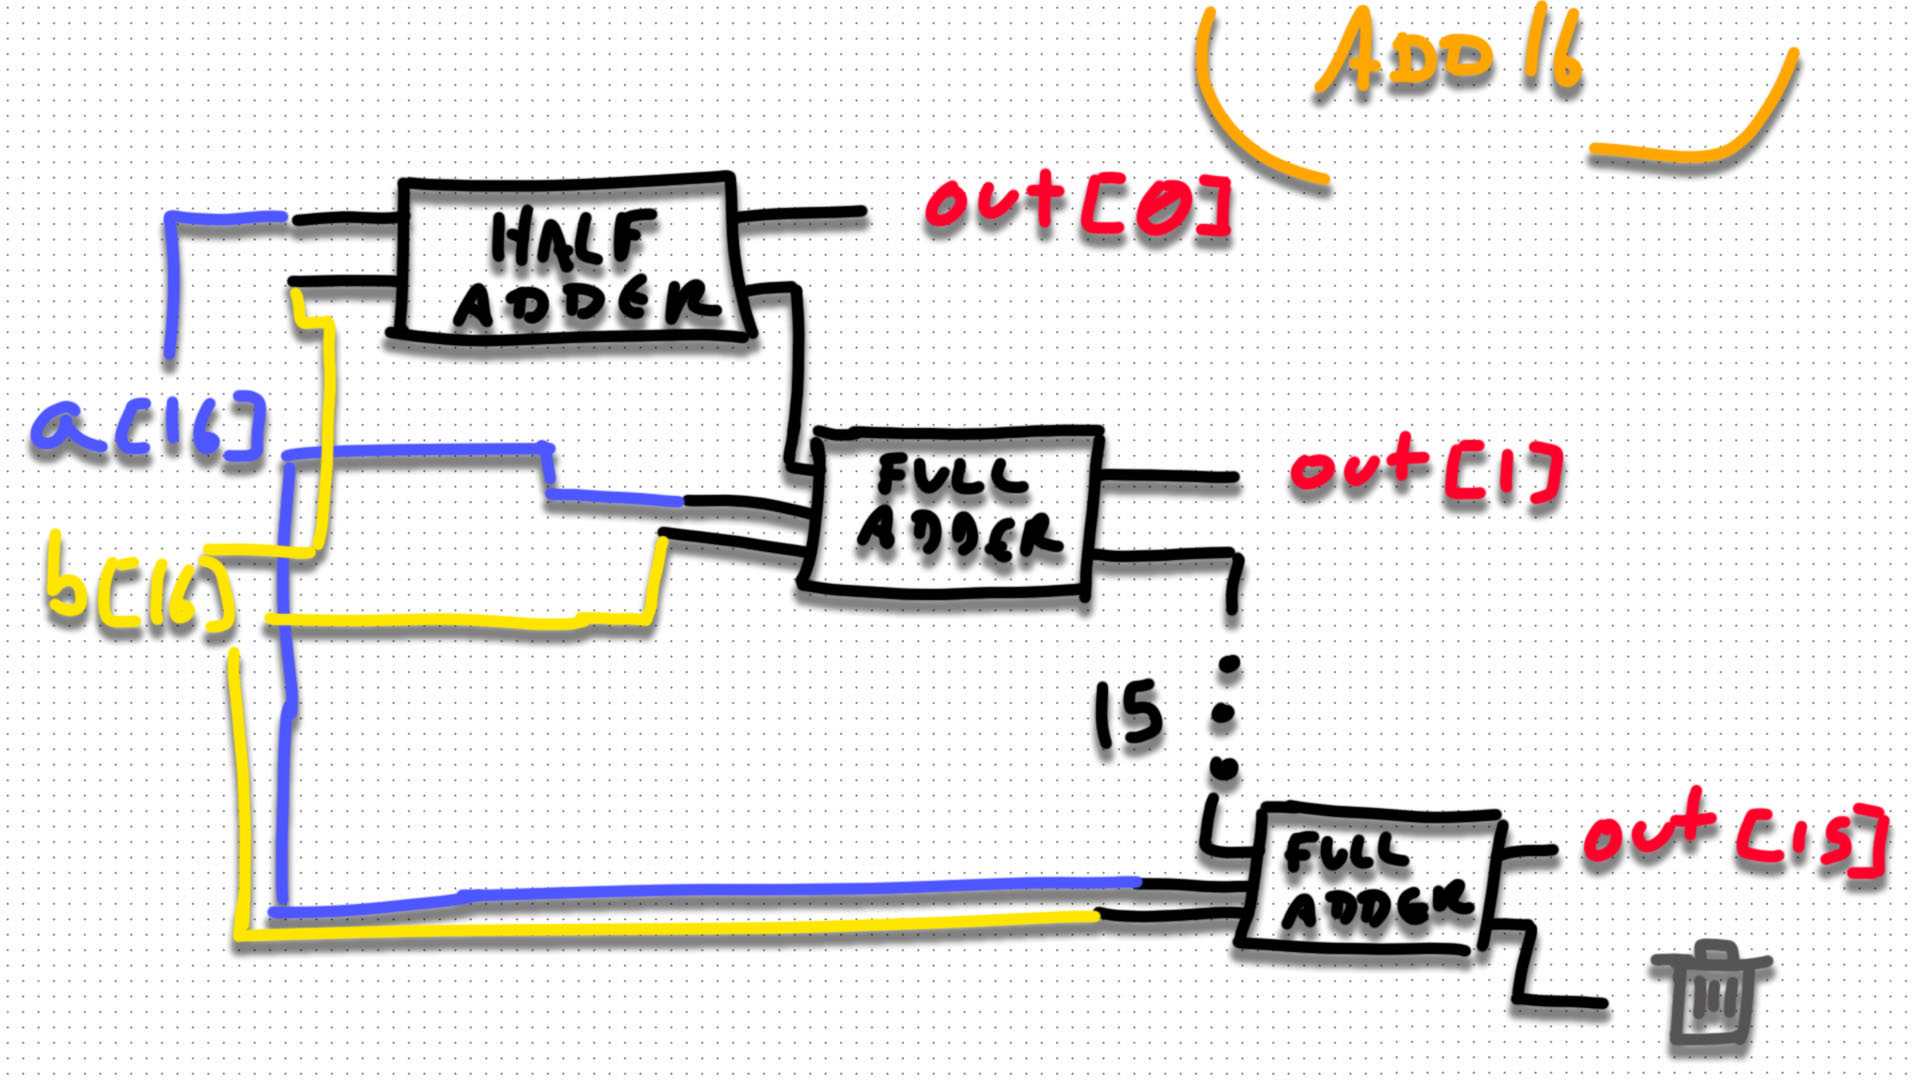 ADD 16
HALF
ADDER
out[0]
a[16]
FULL
ADDER
out[1]
b[16]
15
FULL
ADDER
out[15]